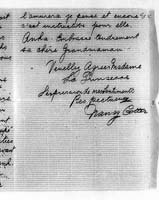 l'amusera je pense et encore
c'est instruction pour elle
Anka Embrasse tendrement
sa chère Grandmaman
Veuillez Agreer Madame
La Princesse
l'expression de mes Sentiments
Respectueux
Nancy